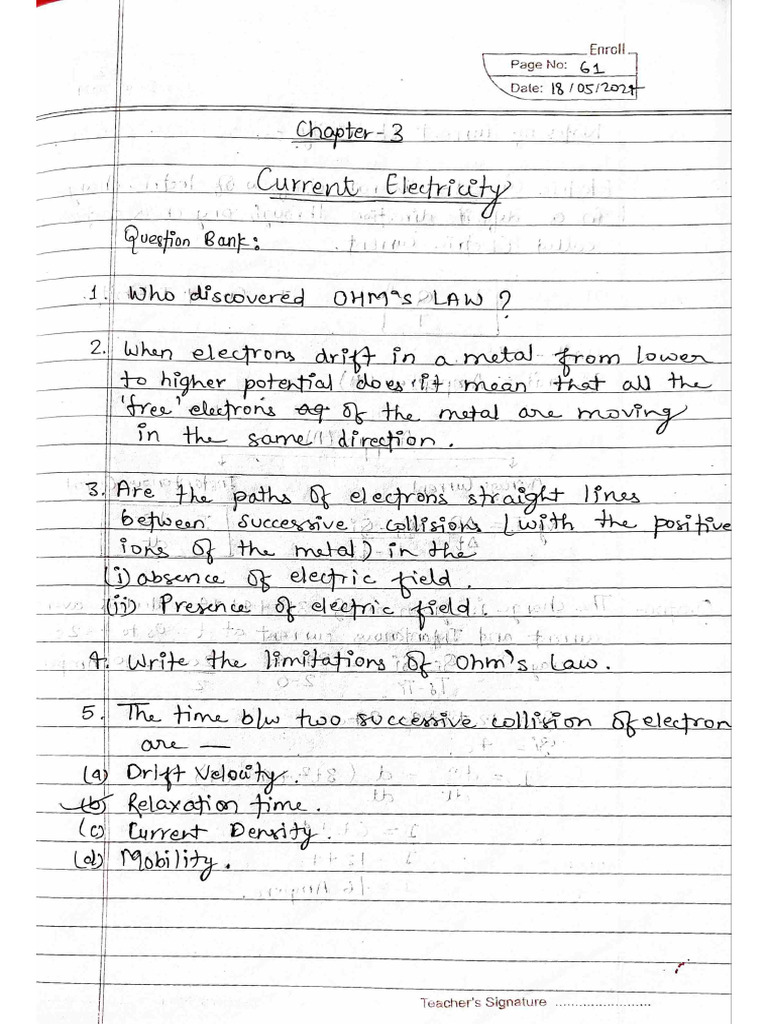 Enroll
Page No: 61
Date: 18/05/2024
Chapter-3
Current Electricity
Question Bank:
1. Who discovered OHM's LAW?
2. When electrons drift in a metal from lower
to higher potential does it mean that all the
'free' electrons of the metal are moving
in the same direction.
3. Are the paths of electrons straight lines
between successive collisions (with the positive
ions of the metal) in the
(i) absence of electric field.
(ii) Presence of electric field.
4. Write the limitations of Ohm's Law.
5. The time b/w two successive collision of electron
are —
(a) Drift Velocity.
(b) Relaxation time.
(c) Current Density.
(d) Mobility.
Teacher's Signature ........................